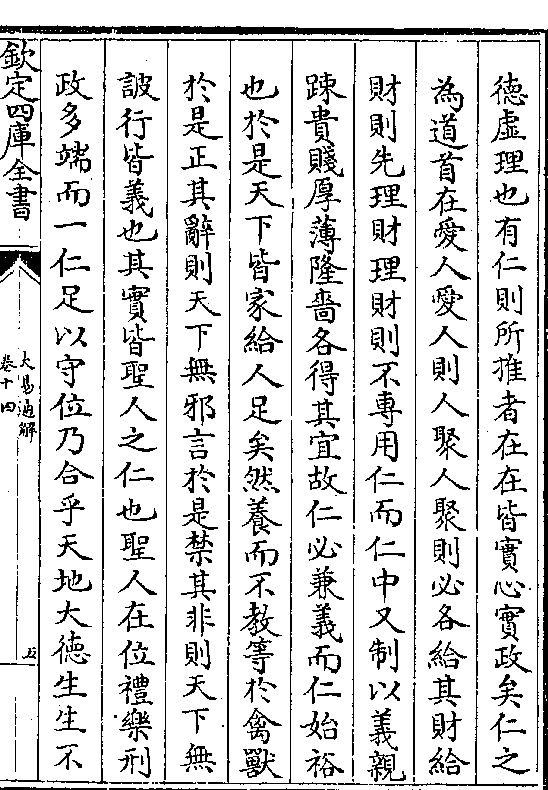 德虛理也有仁則所推者在在皆實心實政矣仁之
為道首在愛人愛人則人聚人聚則必各給其財給
財則先理財理財則不專用仁而仁中又制以義親
踈貴賤厚薄隆嗇各得其宜故仁必兼義而仁始裕
也於是天下皆家給人足矣然養而不教等於禽獸
於是正其辭則天下無邪言於是禁其非則天下無
詖行皆義也其實皆聖人之仁也聖人在位禮樂刑
政多端而一仁足以守位乃合乎天地大德生生不
欽定四庫全書
大易通解
卷十四
五